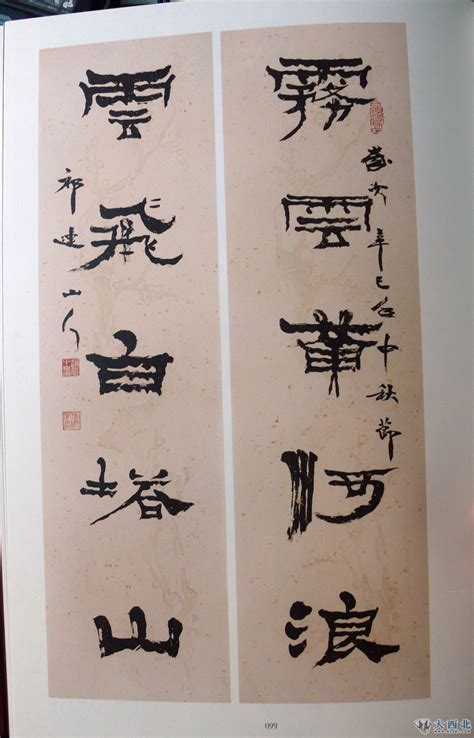 霧雲黄河浪
歲次辛巳年中秋節
雲飛白塔山
祁連山人
099
大西北